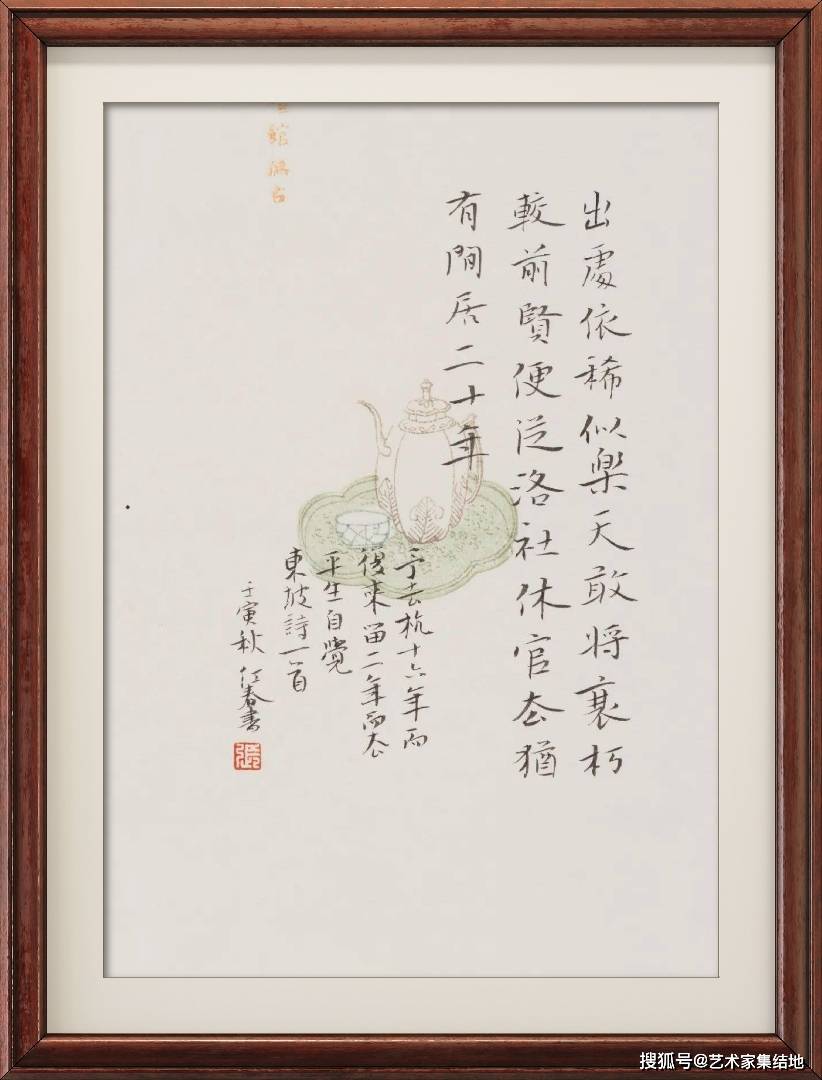 出處依稀似樂天敢將衰朽
較前賢便從洛社休官去猶
有閒居二十年
予去杭十六年而
復來留二年而去
平生自覺
東坡詩一首
壬寅秋 仁春書
張
館
搜狐号@艺术家集结地